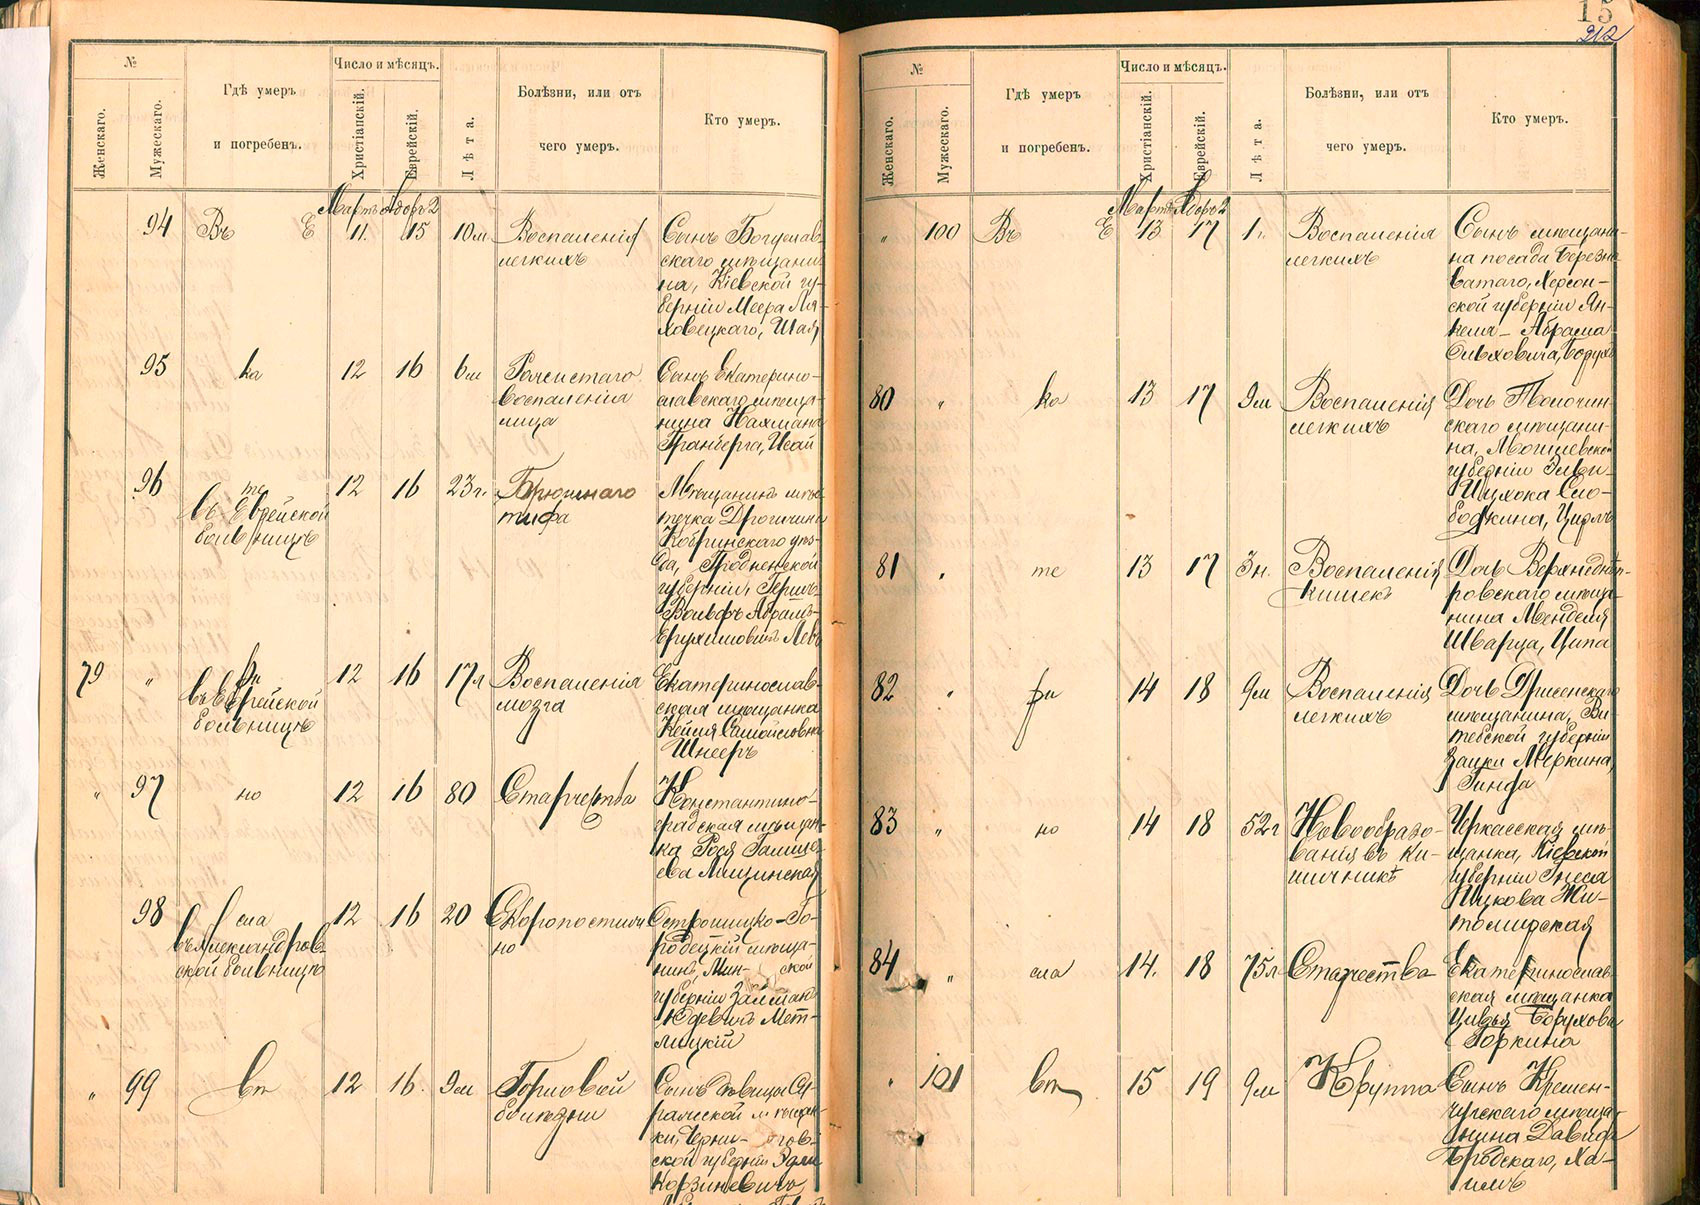 №
Женскаго.
Мужескаго.
Гдѣ умеръ
и погребенъ.
Число и мѣсяцъ.
Христіанскій.
Еврейскій.
Лѣта.
Болѣзни, или отъ
чего умеръ.
Кто умеръ.
Мартъ Адоръ 2
94 Въ Е 11. 15 10 м Воспаленія
легкихъ
Сынъ Богуслав-
скаго мѣщани-
на, Кіевской гу-
берніи Меера Ля-
ховецкаго, Шая
95 ка 12 16 6 м Рожистаго
воспаленія
лица
Сынъ Екатерино-
славскаго мѣща-
нина Нахмана
Гранберга, Исай
96 те
въ Еврейской
больницѣ
12 16 23 г. Брюшнаго
тифа
Мѣщанинъ мѣс-
течка Дрогичина
Кобринскаго уѣз-
да, Гродненской
губерніи, Гершъ-
Вольфъ Абрамъ-
Ерухимовичъ Левъ
79 " ри
въ Еврейской
больницѣ
12 16 17 л Воспаленія
мозга
Екатеринослав-
ская мѣщанка
Кейля Самойловна
Шнееръ
" 97 но 12 16 80 Старчества
Константино-
градская мѣщан-
ка Рося
98 сла
въ Александров-
ской больницѣ
12 16 20 Скоропостиж-
но
Острошицко-Го-
родецкій мѣща-
нинъ, Мин- ской
губерніи Залман
Юдевичъ Мет-
лицкій
" 99 вт 12 16. 9 м Горловой
болѣзни
Сынъ дѣвицы Су-
ражской мѣщан-
ки, Черни- гов-
ской губерніи
15
212
№
Женскаго.
Мужескаго.
Гдѣ умеръ
и погребенъ.
Число и мѣсяцъ.
Христіанскій.
Еврейскій.
Лѣта.
Болѣзни, или отъ
чего умеръ.
Кто умеръ.
Мартъ Адоръ 2
" 100 Въ Е 13 17 1 г. Воспаленія
легкихъ
Сынъ мѣщани-
на посада Березне-
ватаго, Херсон-
ской губерніи Ян-
келя-Абрама
Ольховича, Борухъ
80 " ка 13 17 9 м Воспаленія
легкихъ
Дочь Толочин-
скаго мѣщани-
на, Могилевской
губерніи Эльи-
Ицхока Сло-
бодкина, Цирль
81 " те 13 17 3 н. Воспаленія
кишекъ
Дочь Верхнеднѣп-
ровскаго мѣща-
нина Менделя
Шварца, Ципа
82 " ри 14 18 9 м Воспаленія
легкихъ
Дочь Дрисенскаго
мѣщанина, Ви-
тебской губерніи
Меркина,
Гинда
83 " но 14 18 52 г Новообразо-
ванія въ ки-
шечникѣ
Черкасская мѣ-
щанка, Кіевской
губерніи Гнеся
Ицкова Жи-
томирская
84 " сла 14. 18 75 л Старчества
Екатеринослав-
ская мѣщанка
Цивья Борухова
Горкина
" 101 вт 15 19 9 м Круппа
Сынъ Кремен-
чугскаго мѣща-
нина Давида
Бродскаго, Ха-
имъ